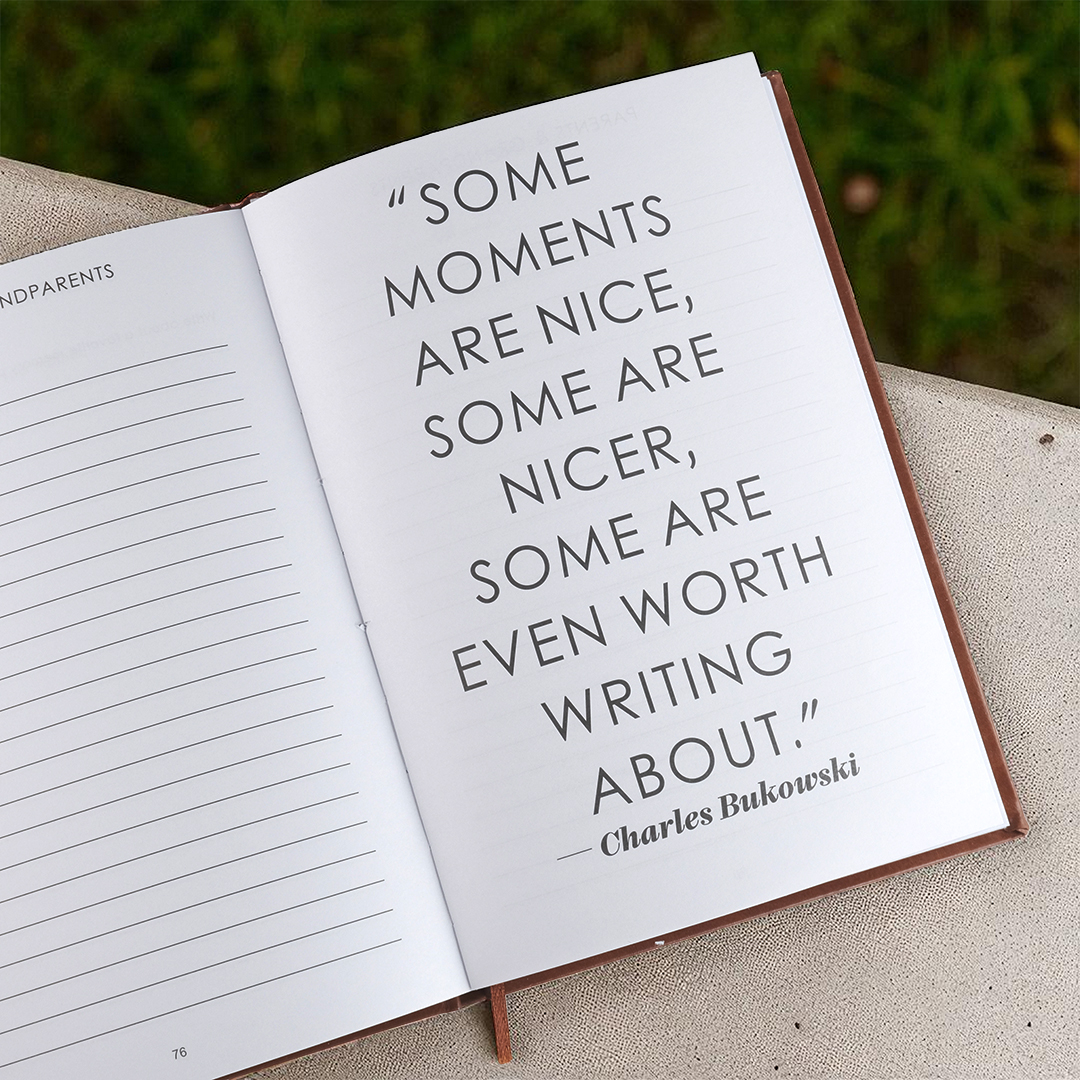 NDPARENTS
76
“SOME
MOMENTS
ARE NICE,
SOME ARE
NICER,
SOME ARE
EVEN WORTH
WRITING
ABOUT.”
— Charles Bukowski